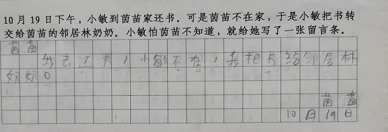 10 月 19 日下午，小敏到茵茵家还书。可是茵茵不在家，于是小敏把书转
交给茵茵的邻居林奶奶。小敏怕茵茵不知道，就给她写了一张留言条。
茵茵
不在 把 给邻居林
奶奶。
茵茵
10月19日